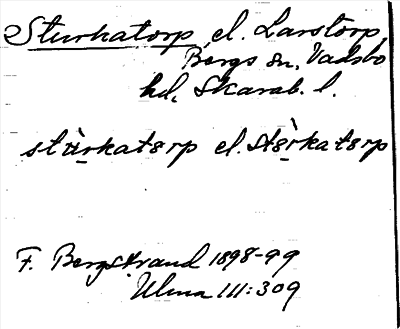 Sturkatorp, el. Larstorp,
Bergs sn, Vadsbo
hd, Skarab. l.
stùrkatɵrp el. stɵ̀rkatɵrp
F. Bergstrand 1898-99
Ulma 111:309